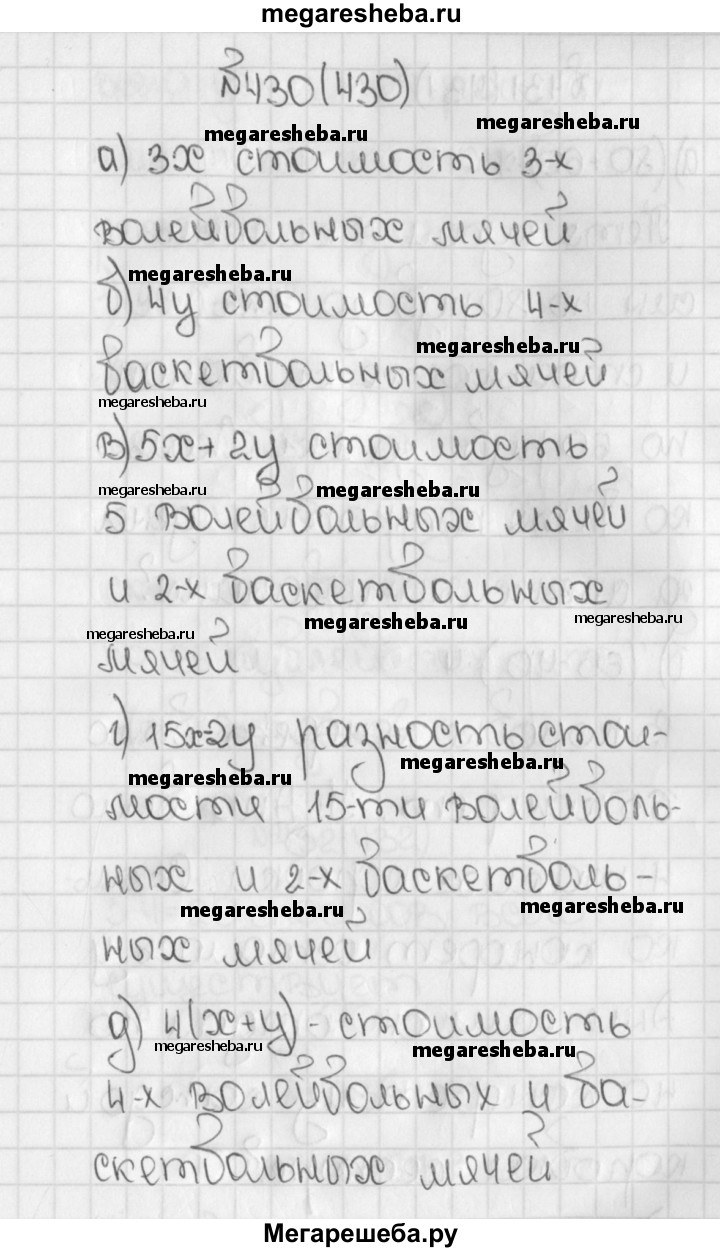 megaresheba.ru
№430(430)
megaresheba.ru megaresheba.ru
а) 3х стоимость 3-х
волейбольных мячей
megaresheba.ru
б) 4у стоимость 4-х
megaresheba.ru
баскетбольных мячей
megaresheba.ru
в) 5х+2у стоимость
megaresheba.ru megaresheba.ru
5 волейбольных мячей
и 2-х баскетбольных
megaresheba.ru megaresheba.ru megaresheba.ru
мячей
г) 15х-2у разность стои-
megaresheba.ru megaresheba.ru
мости 15-ти волейболь-
ных и 2-х баскетболь-
megaresheba.ru megaresheba.ru
ных мячей
д) 4(х+у) - стоимость
megaresheba.ru megaresheba.ru
4-х волейбольных и ба-
скетбольных мячей
Мегарешеба.ру